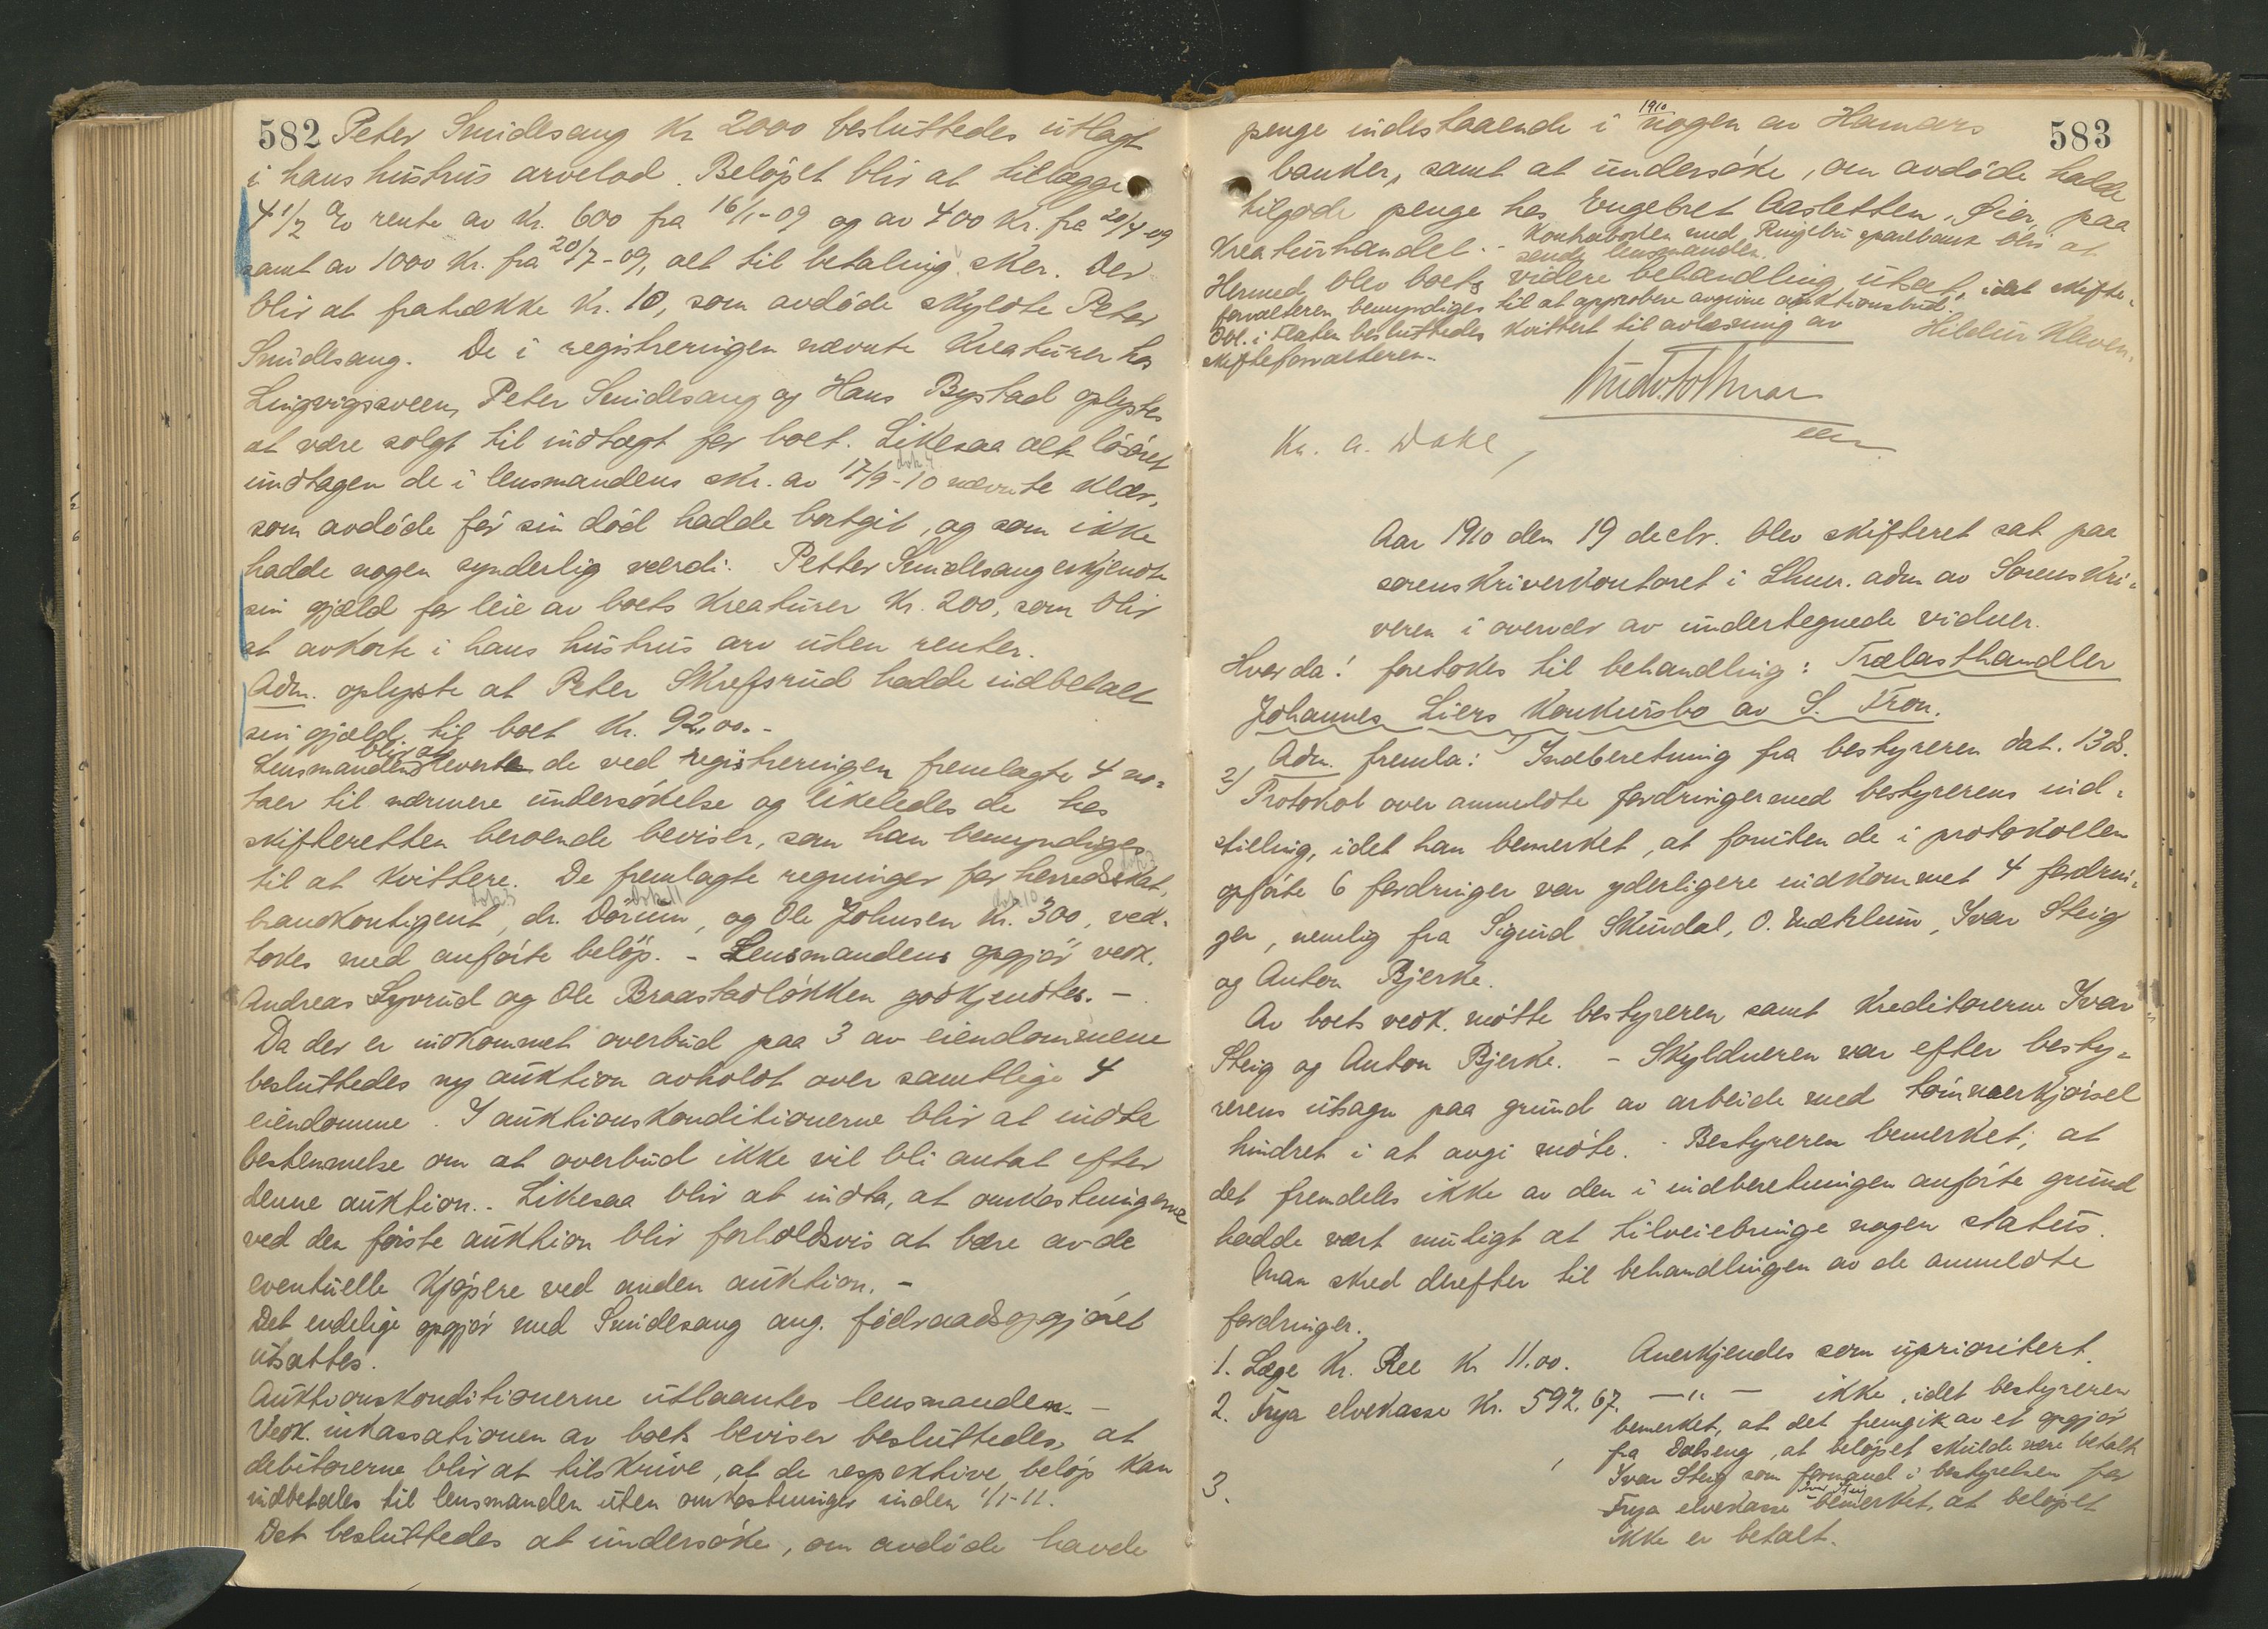 582 Peter Smidesang Kr 2000 besluttedes utlagt
i hans hustrus arvelod. Beløpet blir at tillægge
4 1/2 % rente av Kr. 600 fra 16/1-09 og av 400 Kr. fra 20/4-09
samt av 1000 Kr. fra 20/7-09, alt til betaling sker. Der
blir at fratrække Kr. 10, som avdøde skyldte Peter
Smidesang. De i registreringen nævnte Kreaturer hos
Lingvigssveen, Peter Smidesang og Hans Bystad oplystes
at være solgt til indtægt for boet. Likesaa alt løsøret
undtagen de i lensmandens skr. av 17/9-10 nævnte klær,
som avdøde før sin død hadde bortgit, og som ikke
hadde nogen synderlig værdi. Petter Smidesang erkjendte
sin gjæld for leie av boets Kreaturer Kr. 200, som blir
at avkorte i hans hustrus arv uten renter.
Adm. oplyste at Peter Skrefsrud hadde indbetalt
sin gjæld til boet Kr. 92,00.-
blir at
Lensmanden leverte de ved registreringen fremlagte 4 no-
taer til nærmere undersøkelse og likeledes de hos
skifteretten beroende beviser, som han bemyndiges
til at kvittere. De fremlagte regninger for herredsskat,
brandkontigent, dr. Dørum, og Ole Johnsen Kr. 300, ved-
tokes med anførte beløp. - Lensmandens opgjør vedk.
Andreas Lyvrud og Ole Braastadløkken godkjendtes. -
Da der er indkommet overbud paa 3 av eiendommene
besluttedes ny auktion avholdt over samtlige 4
eiendomme. I auktionskonditionerne blir at indta
bestemmelse om at overbud ikke vil bli antat efter
denne auktion. - Likesaa blir at indta, at omkostningerne
ved den første auktion blir forholdsvis at bære av de
eventuelle kjøpere ved anden auktion. -
Det endelige opgjør med Smidesang ang. födraadsopgjøret
utsattes.
Auktionskonditionerne utlaantes lensmanden. -
Vedk. inkassationen av boets beviser besluttedes, at
debitorerne blir at tilskrive, at de respektive beløp kan
indbetales til lensmanden uten omkostninger inden 1/1-11.
Det besluttedes at undersøke, om avdøde havde
1910
penge indestaaende i nogen av Hamars 583
banker, samt at undersøke, om avdøde hadde
tilgode penge hos Engebret Aasletten, Øier, paa
Kreaturhandel. - Kontraboken med Ringebu sparebank blir at
sende lensmanden.
Hermed blev boets videre behandling utsat, idet skifte-
forvalteren bemyndiges til at approbere avgivne auktionsbud.
Obl. i Flaten besluttedes kvittert til avlæsning av
skifteforvalteren.
Hildur Kleven.
Kn. a. Dake,
Aar 1910 den 19 decbr. blev skifteret sat paa
sorenskriverkontoret i Lhmr. adm av Sorenskri-
veren i overvær av undertegnede vidner.
Hvorda! foretokes til behandling: Trælasthandler
Johannes Liers Konkursbo av S. Fron.
Adm. fremla: 1) Indberetning fra bestyreren dat. 13 ds.
2) Protokol over anmeldte fordringer med bestyrerens ind-
stilling, idet han bemerket, at foruten de i protokollen
opførte 6 fordringer var yderligere indkommet 4 fordrin-
ger, nemlig fra Sigurd Skurdal, O. Mæhlum, Ivar Steig
og Anton Bjerke.
Av boets vedk. møtte bestyreren samt Kreditorerne Ivar
Steig og Anton Bjerke. - Skyldneren var efter besty-
rerens utsagn paa grund av arbeide med tømmerkjørsel
hindret i at avgi møte. - Bestyreren bemerket, at
det fremdeles ikke av den i indberetningen anførte grund
hadde vært muligt at tilveiebringe nogen status.
Man skred derefter til behandlingen av de anmeldte
fordringer.
1. Læge Kr. Ree Kr 11.00. Anerkjendes som uprioritert.
2. Frya elvekasse Kr. 592.67. —"— ikke, idet bestyreren
bemerket, at det fremgik av et opgjør
fra Dalseng, at beløpet skulde være betalt
Ivar Steig som formand i bestyrelsen for
3. Frya elvekasse bemerket, at beløpet
ikke er betalt.